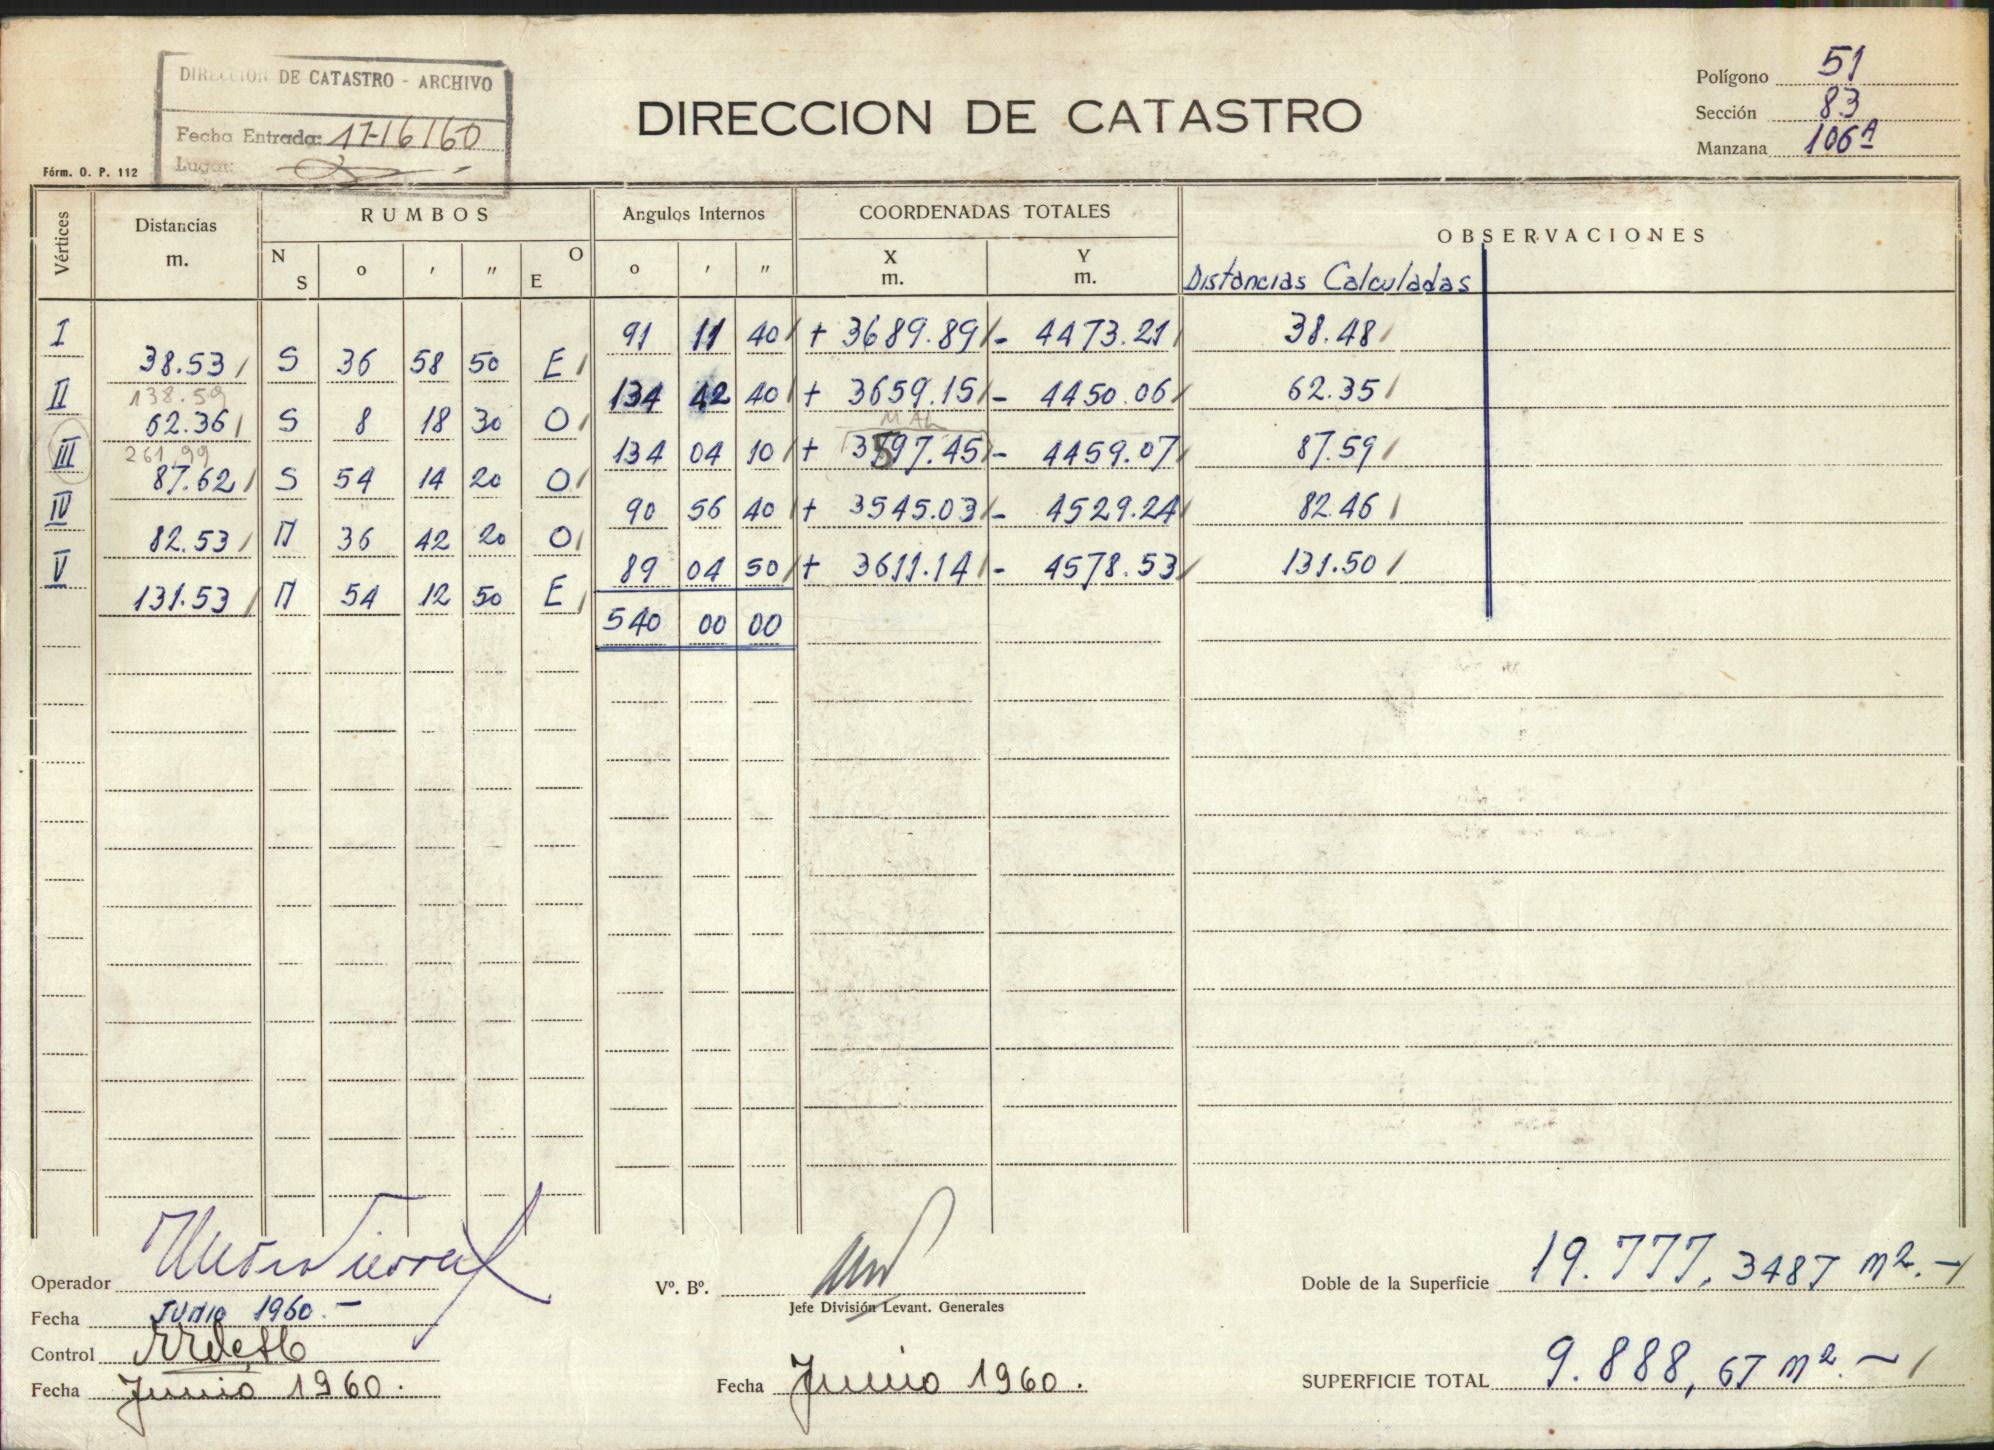 DIRECCION DE CATASTRO - ARCHIVO
Fecha Entrada: 17-6/60
Lugar:
DIRECCION DE CATASTRO
Polígono 51
Sección 83
Manzana 106A
Fórm. O. P. 112
Vértices
Distancias
m.
RUMBOS
N S o ′ ″ E O
Angulos Internos
o ′ ″
COORDENADAS TOTALES
X
m.
Y
m.
OBSERVACIONES
Distancias Calculadas
I 91 11 40 + 3689.89 - 4473.21 38.48
38.53 S 36 58 50 E
II 134 42 40 + 3659.15 - 4450.06 62.35
138.59
MAL
62.36 S 8 18 30 O
III 134 04 10 + 3597.45 - 4459.07 87.59
261.99
87.62 S 54 14 20 O
IV 90 56 40 + 3545.03 - 4529.24 82.46
82.53 N 36 42 20 O
V 89 04 50 + 3611.14 - 4578.53 131.50
131.53 N 54 12 50 E
540 00 00
Operador
Fecha Junio 1960.-
Control
Fecha Junio 1960.
Vº. Bº.
Jefe División Levant. Generales
Fecha Junio 1960.
Doble de la Superficie 19.777,3487 m2.-
SUPERFICIE TOTAL 9.888,67 m2.-